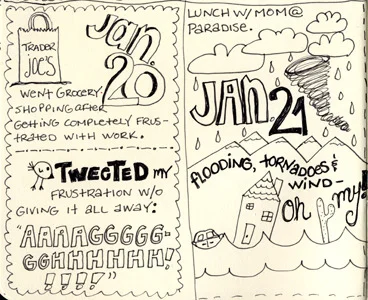 TRADER
JOE'S
Jan.
20
WENT GROCERY
SHOPPING AFTER
GETTING COMPLETELY FRUS-
TRATED WITH WORK.
TWEETED MY
FRUSTRATION W/O
GIVING IT ALL AWAY:
"AAAAGGGGG-
GGHHHHHH!
!!!!"
LUNCH W/ MOM @
PARADISE.
JAN. 21
FLOODING, TORNADOES &
WIND-
Oh my!